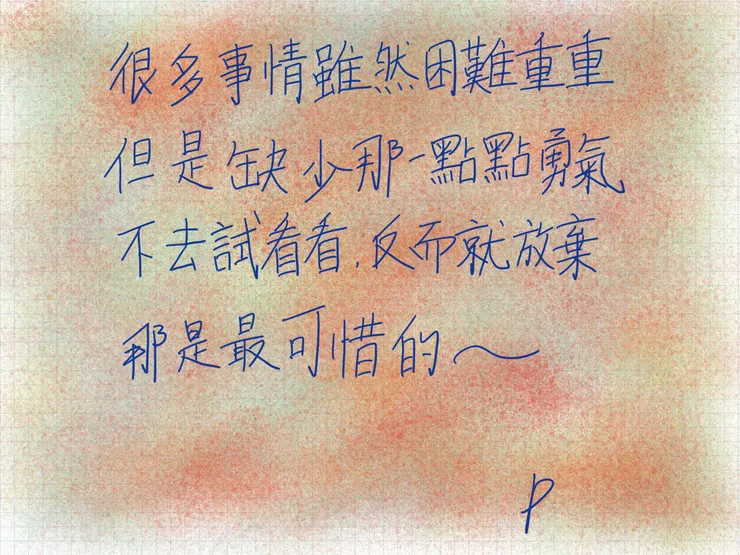 很多事情雖然困難重重
但是缺少那一點點勇氣
不去試看看.反而就放棄
那是最可惜的～
P